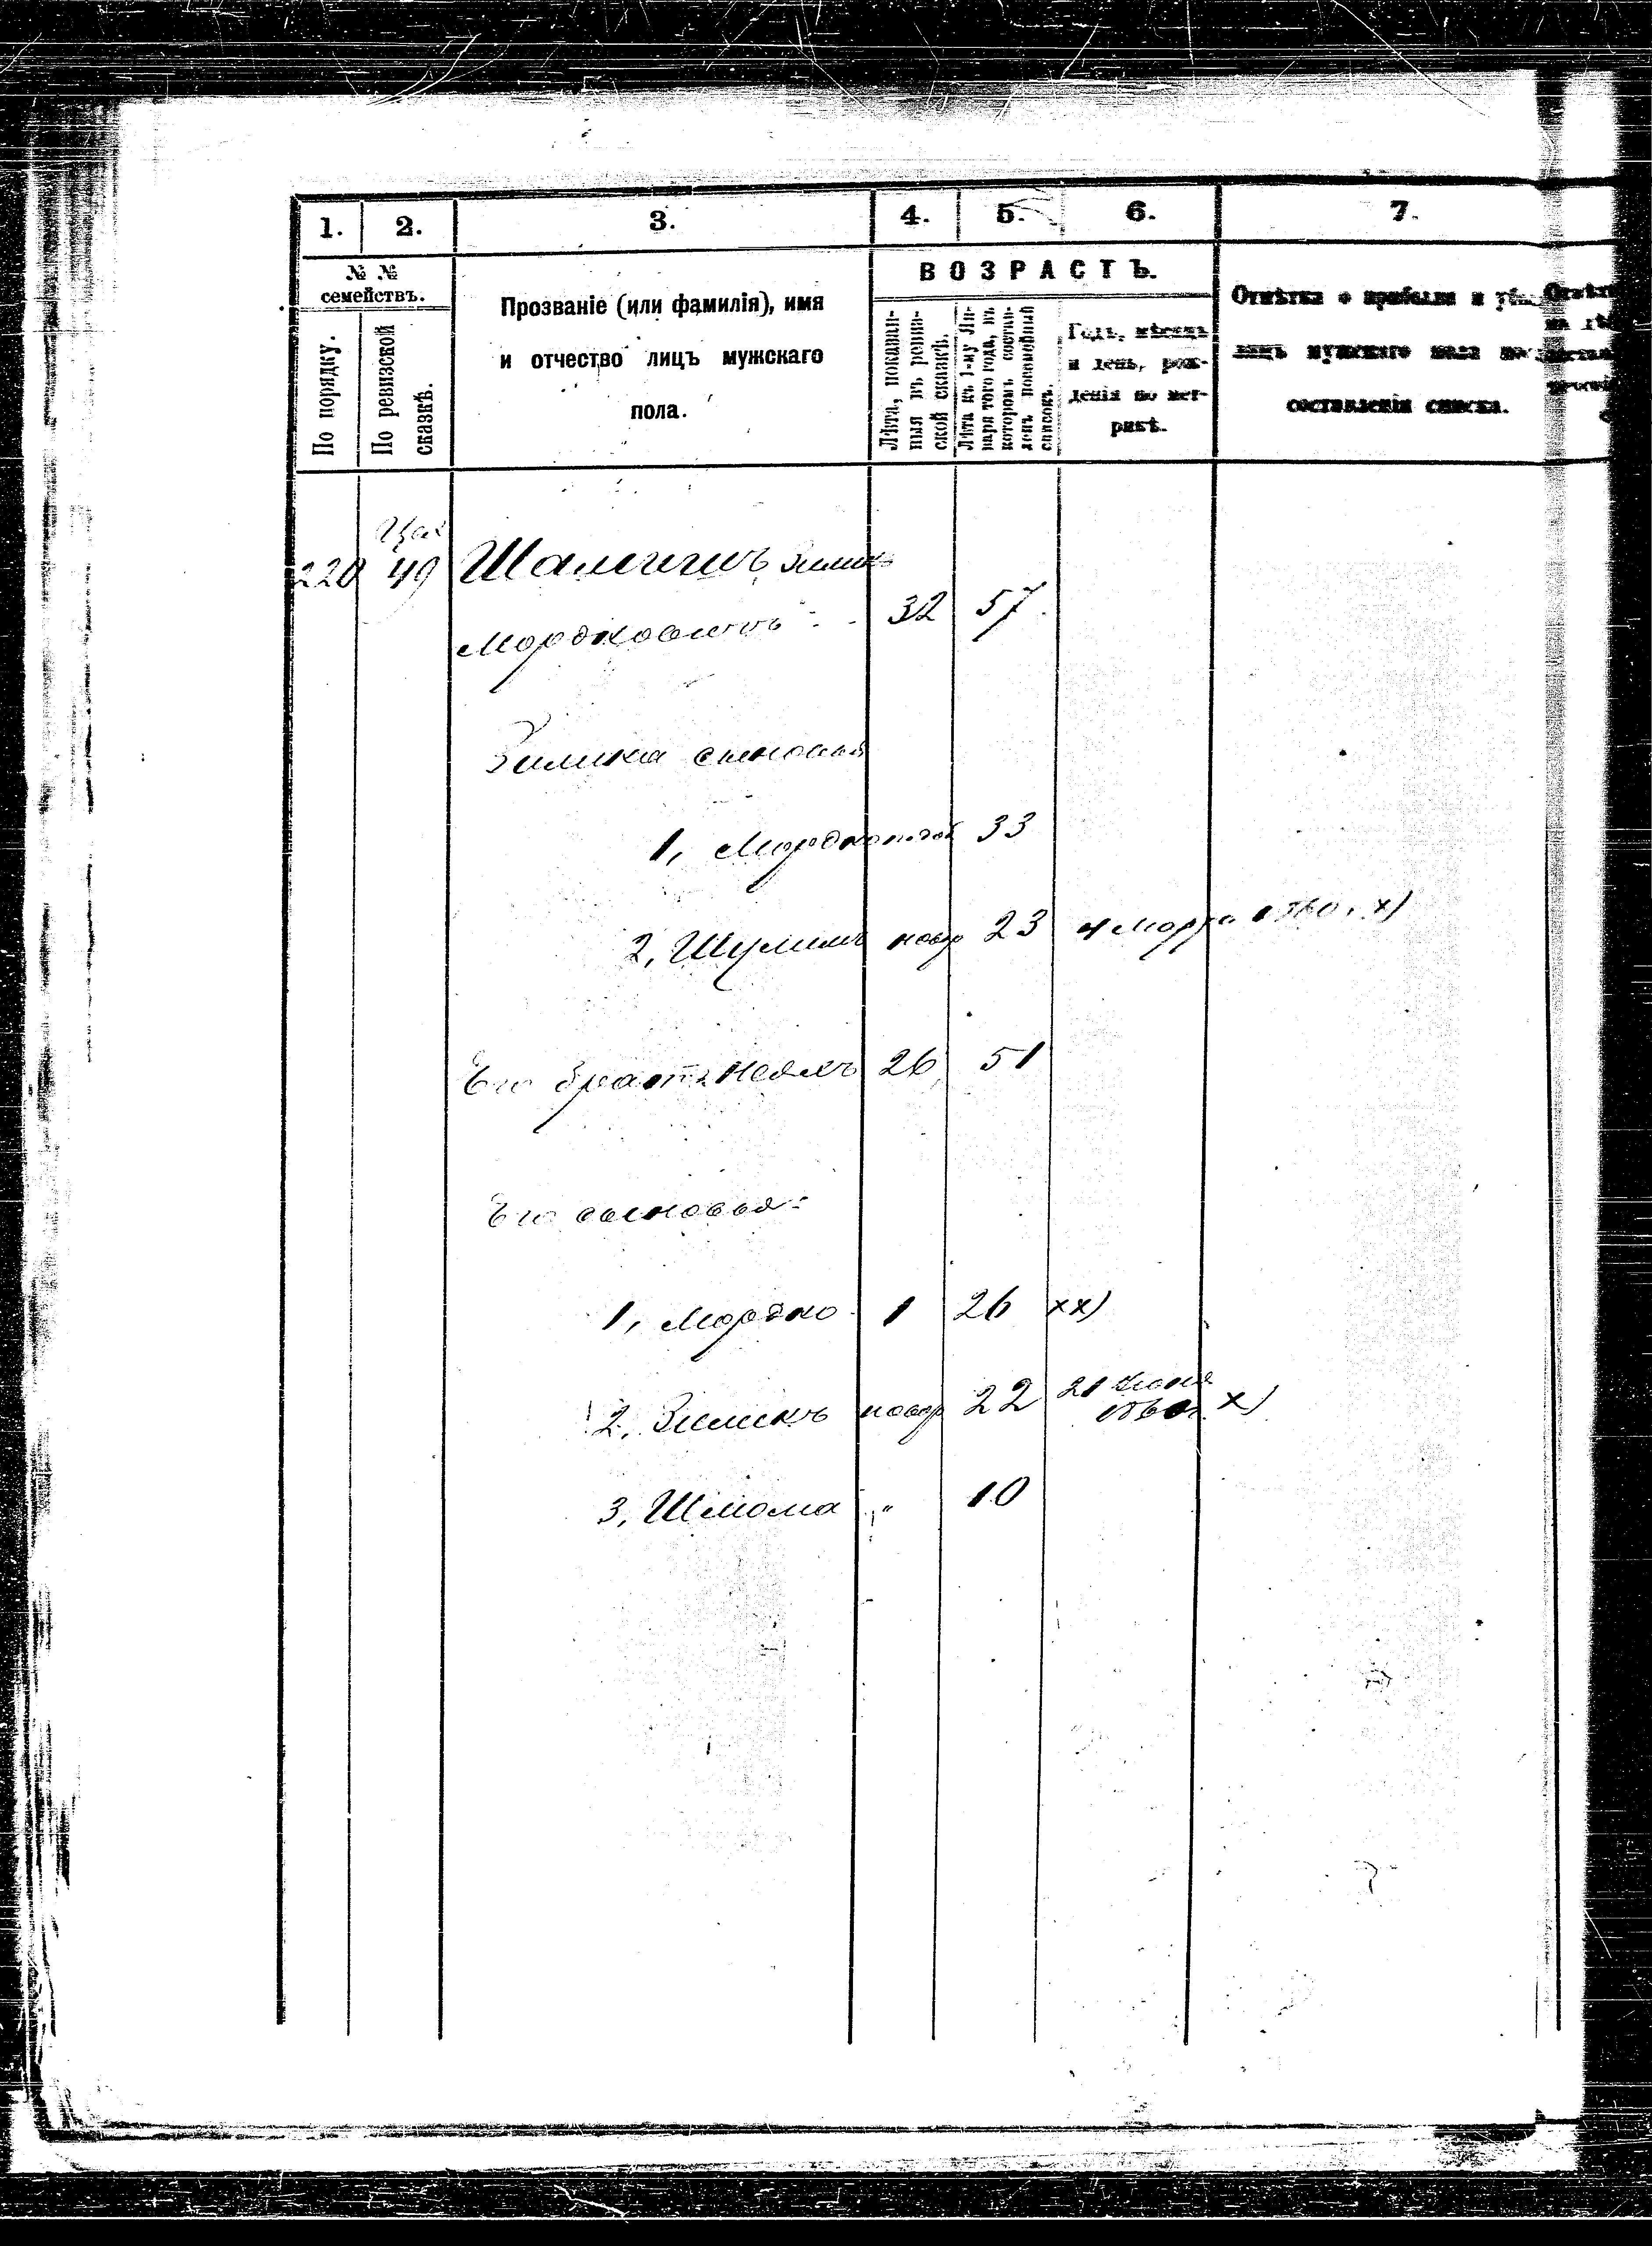 1. 2. 3. 4. 5. 6. 7.
№ №
семействъ.
По порядку.
По ревизской
сказкѣ.
Прозваніе (или фамилія), имя
и отчество лицъ мужскаго
пола.
ВОЗРАСТЪ.
Лѣта, показан-
ныя въ ревиз-
ской сказкѣ.
Лѣта къ 1-му Ян-
варя того года, въ
которомъ состав-
ленъ посемейный
списокъ.
Годъ, мѣсяцъ
и день, рож-
денія по мет-
рикѣ.
Отмѣтка о прибыли и
лицъ мужскаго пола
составленія списка.
220 49 Зиликъ
Мордковичъ 32 57
Зилика сыновья
1, Мордко 33
2, Шулимъ новор 23 4 Марта 1860 г. х)
Его братъ 26 51
Его сыновья:
1, Мордко 1 26 хх)
2, Зиликъ новор 22 21 Іюня
1860 г. х)
3, Шлома " 10